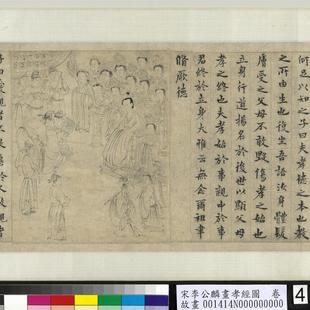 何足以知之子曰夫孝德之本也教
之所由生也復坐吾語汝身體髮
膚受之父母不敢毀傷孝之始也
立身行道揚名於後世以顯父母
孝之終也夫孝始於事親中於事
君終於立身大雅云無念爾祖聿
脩厥德
子曰愛親者不敢惡於人敬親者
宋李公麟畫孝經圖 卷
故畫 001414N000000000
4